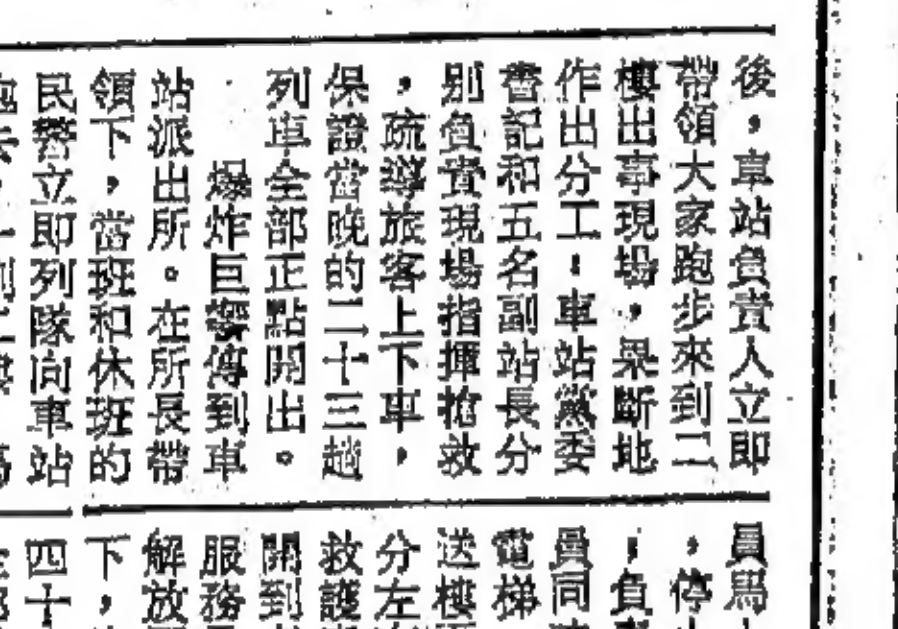 後，車站負責人立即
帶領大家跑步來到二
樓出事現場，果斷地
作出分工：車站黨委
書記和五名副站長分
別負責現場指揮搶救
，疏導旅客上下車，
保證當晚的二十三趟
列車全部正點開出。
爆炸巨響傳到車
站派出所。在所長帶
領下，當班和休班的
民警立即列隊向車站
員馬
，停
負
員同
電梯
送樓
分左
救護
開到
服務
解放
下，
四十